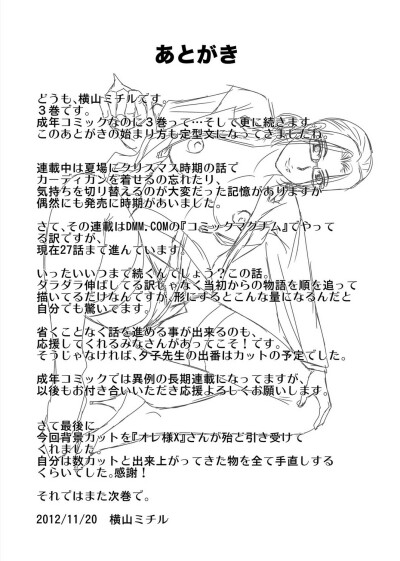 あとがき
どうも、横山ミチルです。
３巻です。
成年コミックなのに３巻って…そして更に続きます
このあとがきの始まり方も定型文になってきましたね。
連載中は夏場にクリスマス時期の話で
カーディガンを着せるの忘れたり、
気持ちを切り替えるのが大変だった記憶がありますが
偶然にも発売に時期があいました。
さて、その連載はDMM.COMの『コミックマグナム』でやって
る訳ですが、
現在27話まで進んでいます。
いったいいつまで続くんでしょう？この話。
ダラダラ伸ばしてる訳じゃなく当初からの物語を順を追って
描いてるだけなんですが、形にするとこんな量になるんだと
自分でも驚いてます。
省くことなく話を進める事が出来るのも、
応援してくれるみなさんがあってこそ！です。
そうじゃなければ、夕子先生の出番はカットの予定でした。
成年コミックでは異例の長期連載になってますが、
以後もお付き合いいただき応援よろしくお願いします。
さて最後に
今回背景カットを『オレ様X』さんが殆ど引き受けて
くれました。
自分は数カットと出来上がってきた物を全て手直しする
くらいでした。感謝！
それではまた次巻で。
2012/11/20　横山ミチル